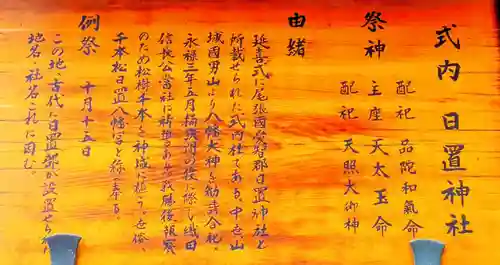 式内 日置神社
祭神
配祀 品陀和氣命
主座 天太玉命
配祀 天照大御神
由緒
延喜式に尾張國愛智郡日置神社と
所載せられた式内社である。中世、山
城國男山より八幡大神を勧請合祀。
永禄三年五月桶狭間の役に際し織田
信長公当社に祈願あり戦勝後報賽
のため松樹千本を神域に植う。世俗、
千本松日置八幡宮と称え奉る。
例祭 十月十五日
この地、古代に日置部が設置せられ
地名、社名これに因む。